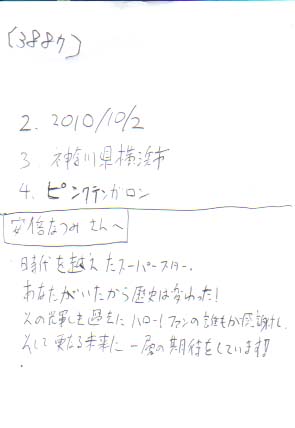 [3887]
2. 2010/10/2
3 神奈川県横浜市
4. ピンクテンガロン
安倍なつみさんへ
時代を越えたスーパースター。
あなたがいたから歴史は変わった!
その光輝しき過去にハロー!ファンの誰もが感謝し、
そして更なる未来に一層の期待をしています!!